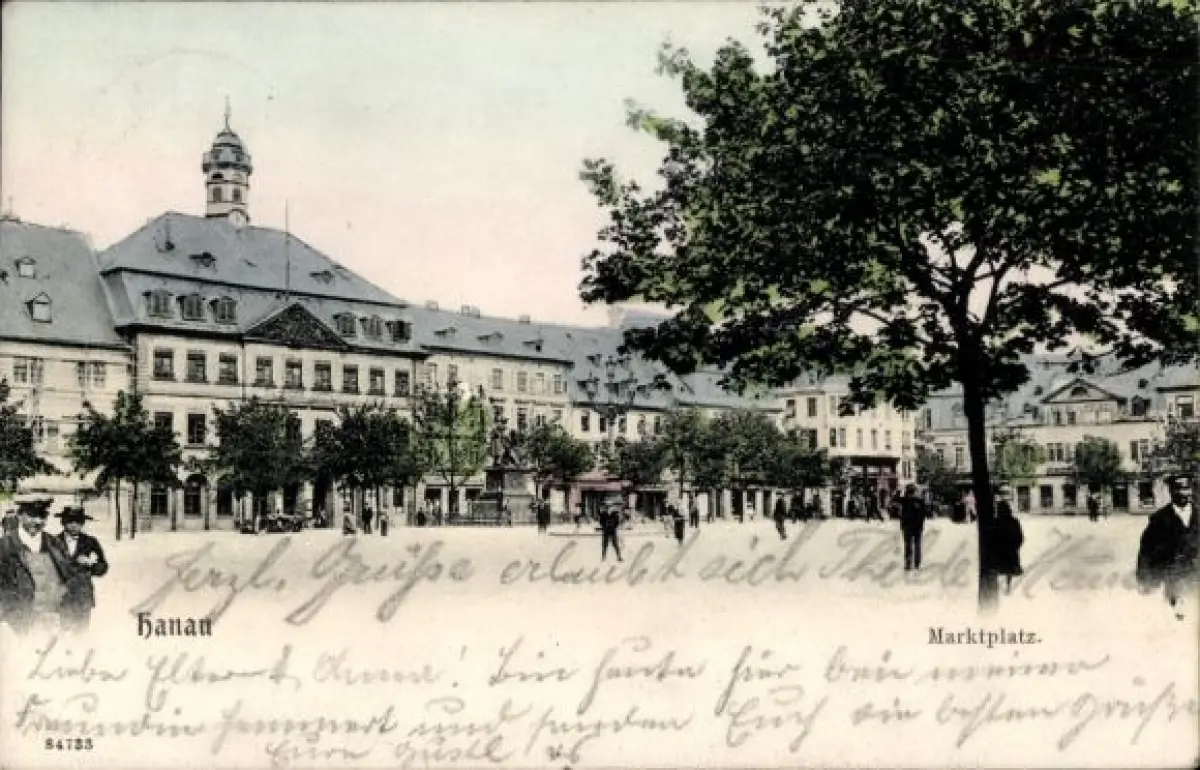 Herzl. Grüße erlaubt sich Thilde
Hanau
Marktplatz.
Liebe Eltern & Anna! Bin heute hier bei meiner
Freundin und senden Euch die besten Grüße
Eure Gustl
84733